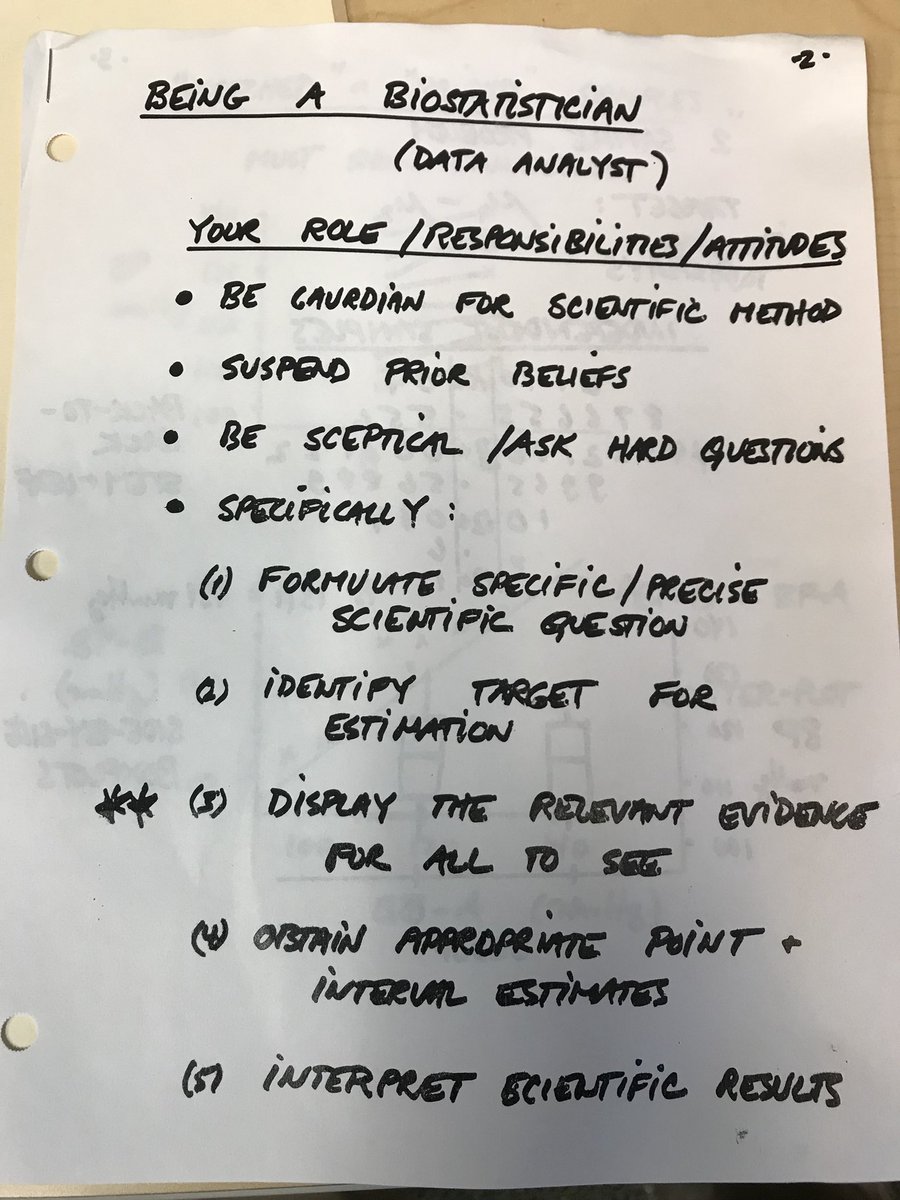 ·2·
BEING A BIOSTATISTICIAN
(DATA ANALYST)
YOUR ROLE/RESPONSIBILITIES/ATTITUDES
• BE GAURDIAN FOR SCIENTIFIC METHOD
• SUSPEND PRIOR BELIEFS
• BE SCEPTICAL /ASK HARD QUESTIONS
• SPECIFICALLY:
(1) FORMULATE SPECIFIC/PRECISE
SCIENTIFIC QUESTION
(2) IDENTIFY TARGET FOR
ESTIMATION
** (3) DISPLAY THE RELEVANT EVIDENCE
FOR ALL TO SEE
(4) OBTAIN APPROPRIATE POINT +
INTERVAL ESTIMATES
(5) INTERPRET SCIENTIFIC RESULTS